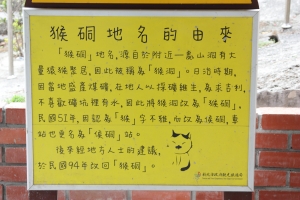 猴硐地名的由來
「猴硐」地名,源自於附近一處山洞有大
量猿猴聚居,因此被稱為「猴洞」。日治時期,
因當地盛產煤礦,在地人以採礦維生,為求吉利,
不喜歡礦坑裡有水,因此將猴洞改為「猴硐」,
民國51年,因認為「猴」字不雅,而改為侯硐,車
站也更名為「侯硐」站。
後來經地方人士的建議,
於民國94年改回「猴硐」。